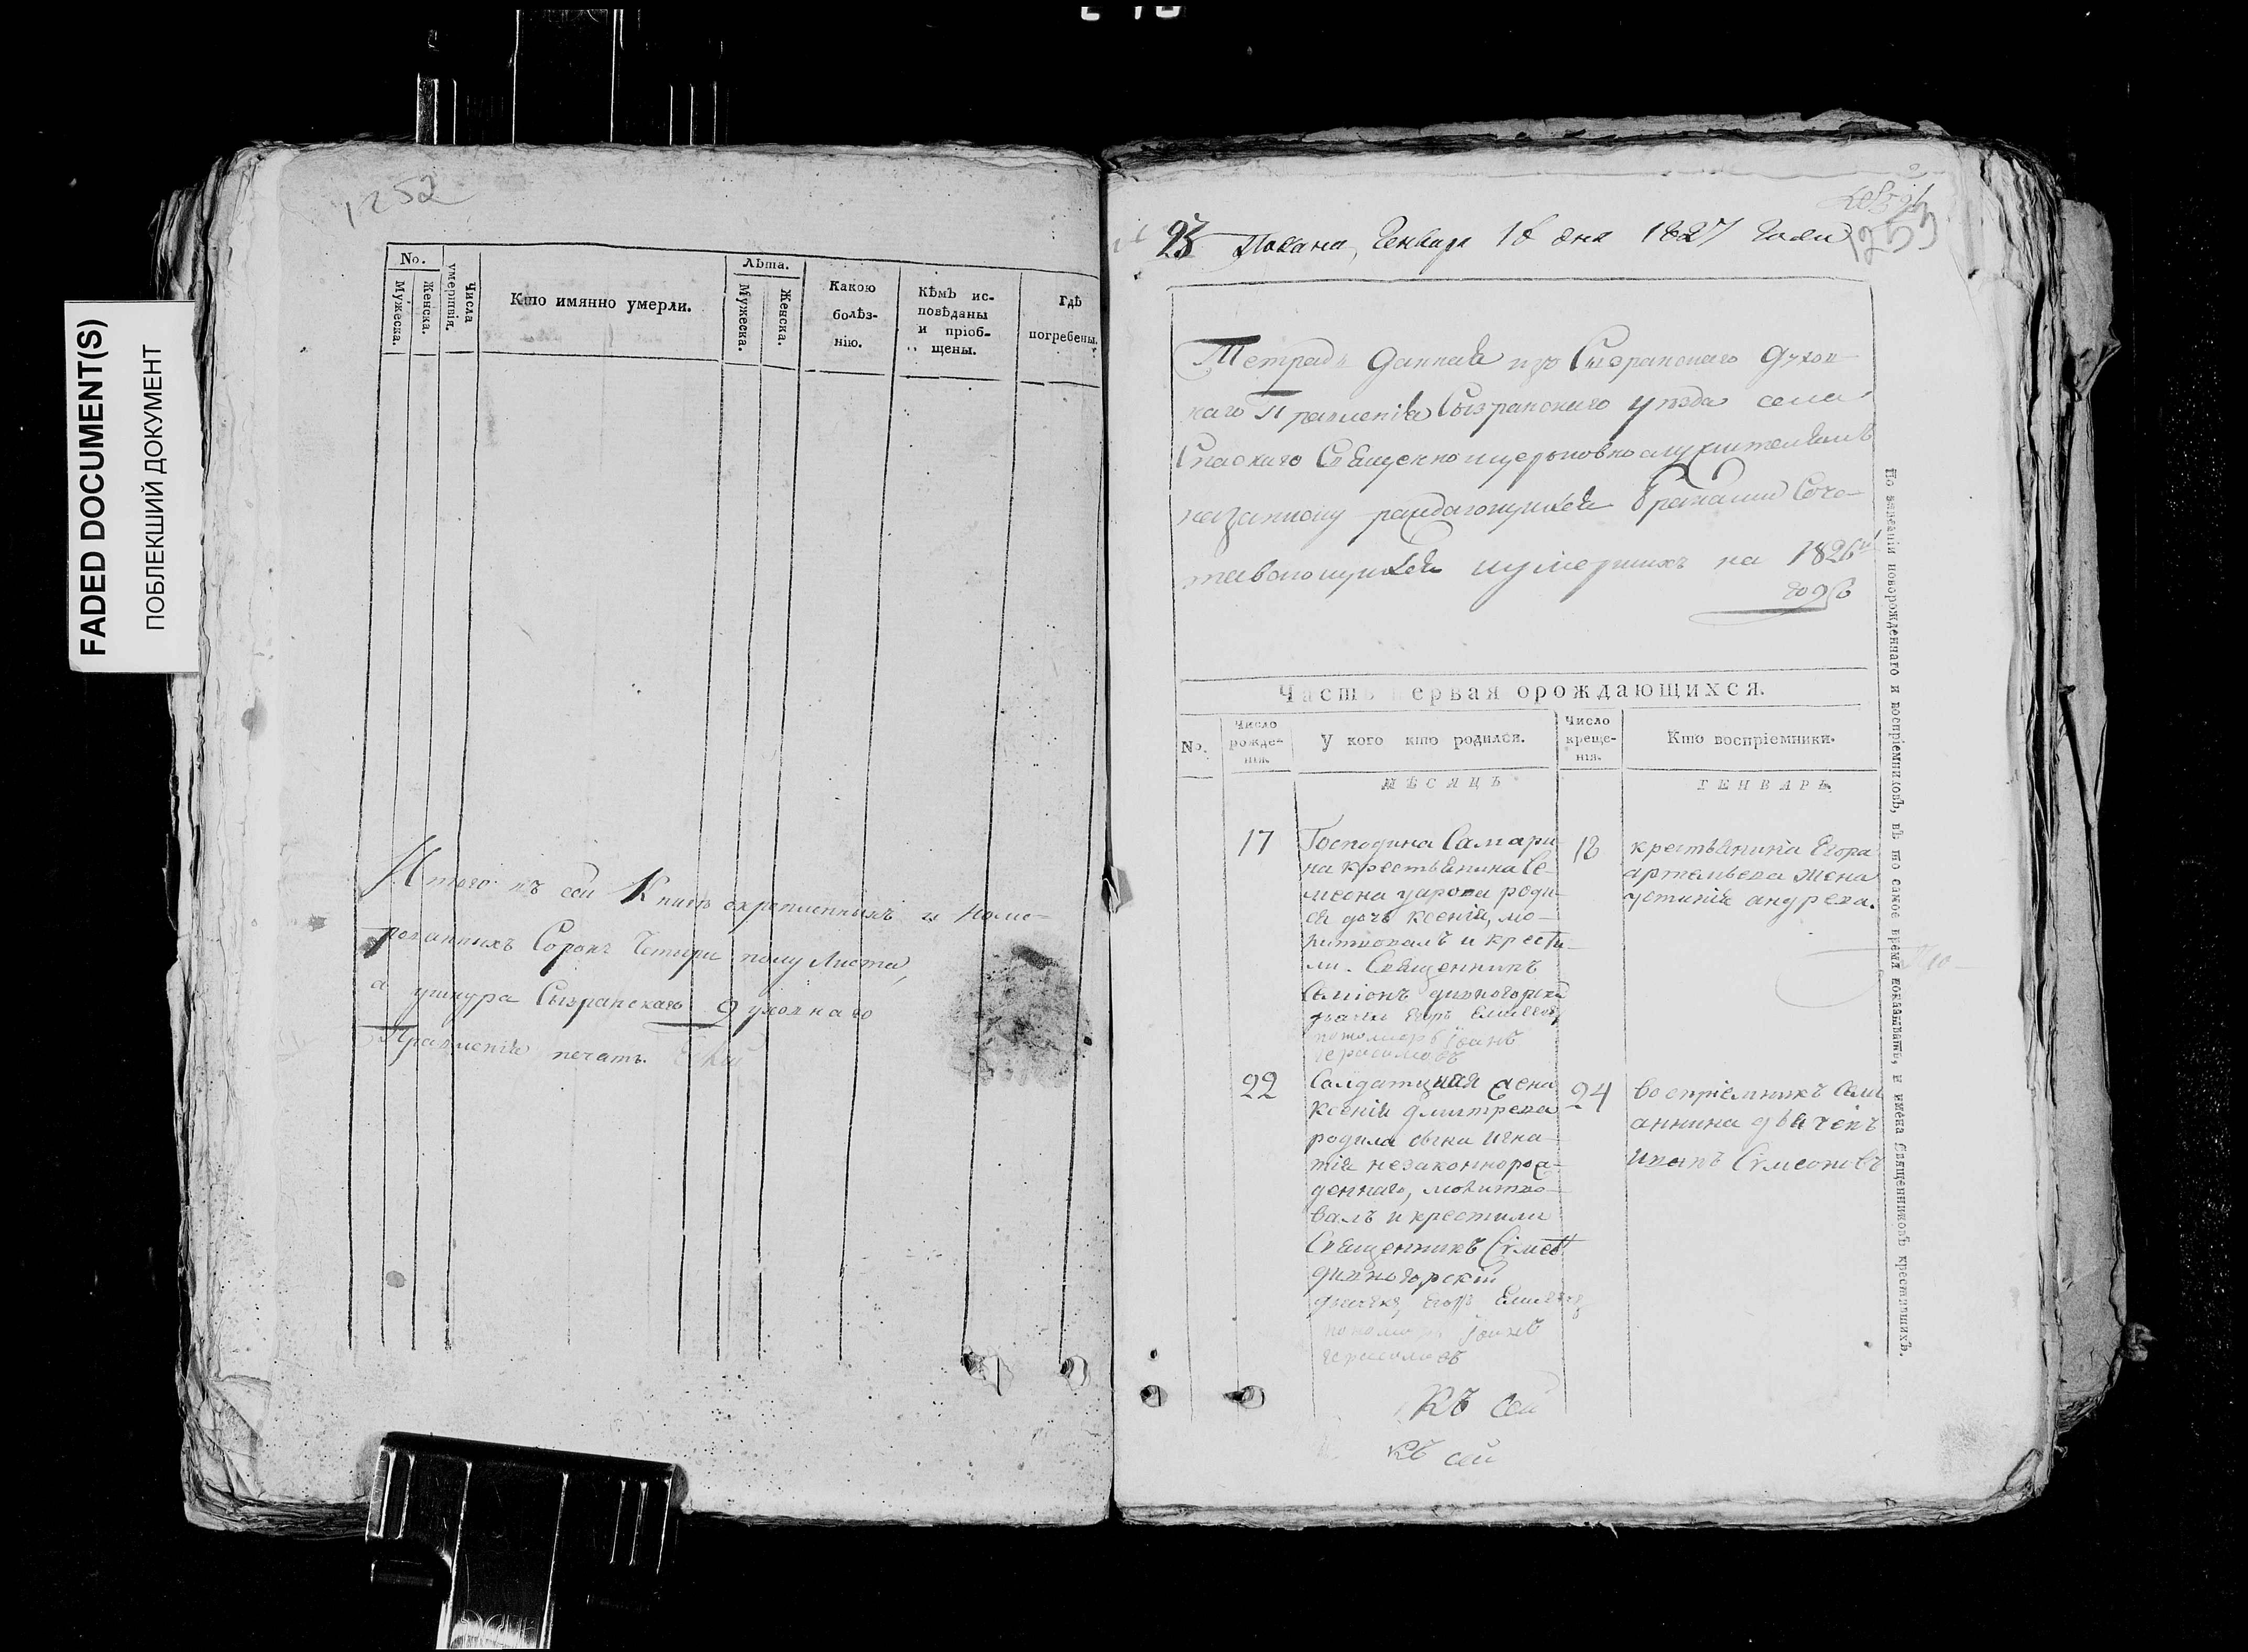 FADED DOCUMENT(S)
ПОБЛЕКШИЙ ДОКУМЕНТ
1252
No.
Мужеска.
Женска.
Числа умершвія.
Кто имянно умерли.
Лѣта.
Мужеска.
Женска.
Какою
болѣз-
нію.
Кѣмъ ис-
повѣданы
и пріоб-
щены.
Гдѣ
погребены.
Итого въ сей Книгѣ скрепленныхъ и номе-
рованныхъ Сорокъ Четыри полу Листа,
а у шнура Сызранскаго Духовнаго
Правленія печать.
1253
23 Подана, Генваря 18 дня 1827 Года
Тетрадь Данная изъ Сызранскаго Духов-
наго Правленія Сызранскаго уѣзда села
Спаскаго Священно ицерьковнослужителямъ
раждающихся Браками Соче-
тавающихся иумершихъ на 1826й
годъ
Часть первая орождающихся.
No.
Число
рожде-
нія.
У кого кто родился.
Число
креще-
нія.
Кто воспріемники.
МѢСЯЦЪ
ГЕНВАРЬ.
17
Господина Самари
на крестьянина Се-
меона уарова роди
ся дочь Ксенія, мо-
литвовалъ и крести-
ли. Священникъ
Симіонъ дивногорскій
дьячекъ Егоръ Елисѣевъ
пономарь Іоанъ
герасимовъ
18
крестьянина Егора
артемьева жена
устинія андреева.
22
Солдатцкая жена
Ксенія дмитрева
родила сына Игна-
тія незаконнорож-
деннаго, молитво-
валъ и крестили
Священникъ Сѵмеонъ
дивногорскій
дьячекъ Егоръ Елисѣевъ
пономарь Іоанъ
герасимовъ
24
воспріемникъ Семи
аннина дьячекъ
Иванъ Сѵмеоновъ
Къ сей
къ сей
По внесеніи новорожденнаго и воспріемниковъ, въ то самое время показывать, и имена Священниковъ крестившихъ.